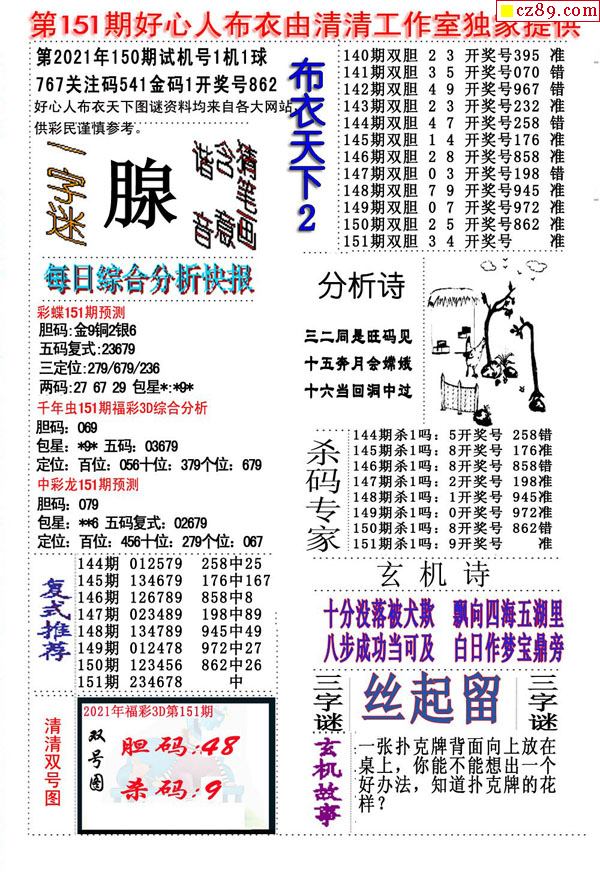 cz89.com
第151期好心人布衣由清清工作室独家提供
第2021年150期试机号1机1球
767关注码541金码1开奖号862
好心人布衣天下图谜资料均来自各大网站,
供彩民谨慎参考。
一字迷
腺
猜笔画
含意
谐音
布衣天下2
140期双胆 2 3 开奖号395 准
141期双胆 3 5 开奖号070 错
142期双胆 4 9 开奖号967 错
143期双胆 2 3 开奖号232 准
144期双胆 4 7 开奖号258 错
145期双胆 1 4 开奖号176 准
146期双胆 2 8 开奖号858 准
147期双胆 0 3 开奖号198 错
148期双胆 7 9 开奖号945 准
149期双胆 0 7 开奖号972 准
150期双胆 2 5 开奖号862 准
151期双胆 3 4 开奖号 准
每日综合分析快报
彩蝶151期预测
胆码:金9铜2银6
五码复式:23679
三定位:279/679/236
两码:27 67 29 包星*:*9*
千年虫151期福彩3D综合分析
胆码：069
包星：*9* 五码：03679
定位：百位：056十位：379个位：679
中彩龙151期预测
胆码：079
包星：**6 五码复式：02679
定位：百位：456十位：279个位：067
分析诗
三二同是旺码见
十五奔月会嫦娥
十六当回洞中过
杀码专家
144期杀1吗：5开奖号 258错
145期杀1吗：8开奖号 176准
146期杀1吗：8开奖号 858错
147期杀1吗：2开奖号 198准
148期杀1吗：1开奖号 945准
149期杀1吗：0开奖号 972准
150期杀1吗：8开奖号 862错
151期杀1吗：9开奖号 准
复式推荐
144期 012579 258中25
145期 134679 176中167
146期 126789 858中8
147期 023489 198中89
148期 134789 945中49
149期 012478 972中27
150期 123456 862中26
151期 234678 中
玄机诗
十分没落被犬欺 飘向四海五湖里
八步成功当可及 白日作梦宝鼎旁
三字谜
丝起留
三字谜
清清双号图
2021年福彩3D第151期
双号图
胆码:48
杀码:9
玄机故事
一张扑克牌背面向上放在
桌上，你能不能想出一个
好办法，知道扑克牌的花
样？